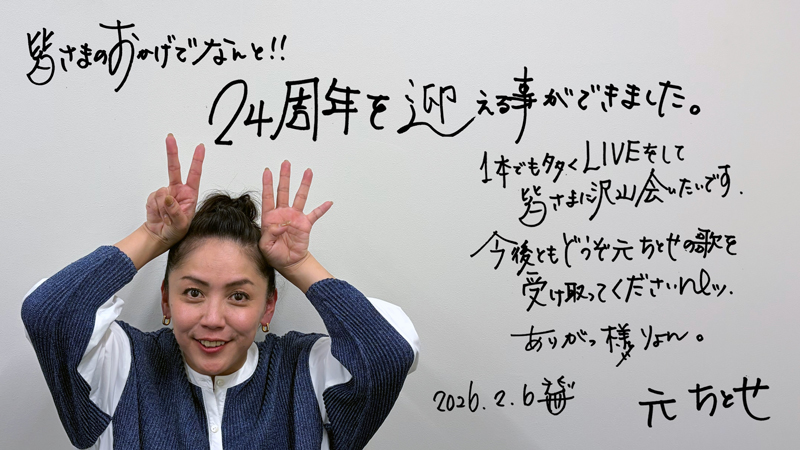 皆さまのおかげでなんと!!
24周年を迎える事ができました。
1本でも多くLIVEをして
皆さまに沢山会いたいです.
今後ともどうぞ元ちとせの歌を
受け取ってくださいね
ありがっ様りょん。
2026.2.6
元ちとせ